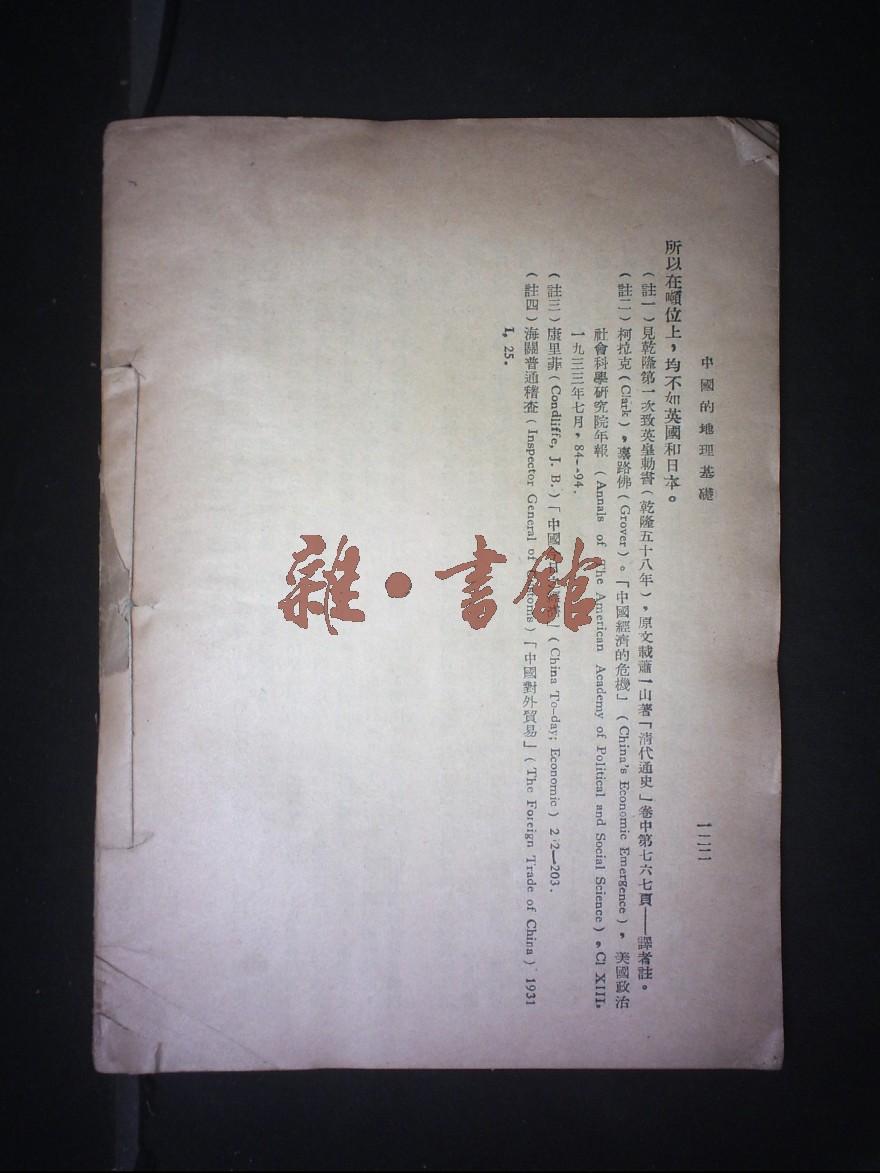 中國的地理基礎
所以在噸位上，均不如英國和日本。
（註一）見乾隆第一次致英皇勅書（乾隆五十八年），原文載蕭一山著「清代通史」卷中第七六七頁——譯者註。
（註二）柯拉克（Clark），裹路佛（Grover）。「中國經濟的危機」（China's Economic Emergence），美國政治
社會科學研究院年報（Annals of The American Academy of Political and Social Science），Cl XIII,
一九三三年七月，84—94.
（註三）康里菲（Condliffe, J. B.）「中國」（China To-day; Economic）203.
（註四）海關普通稽查（Inspector General of Customs）「中國對外貿易」（The Foreign Trade of China）1931
I, 25.
雜·書館